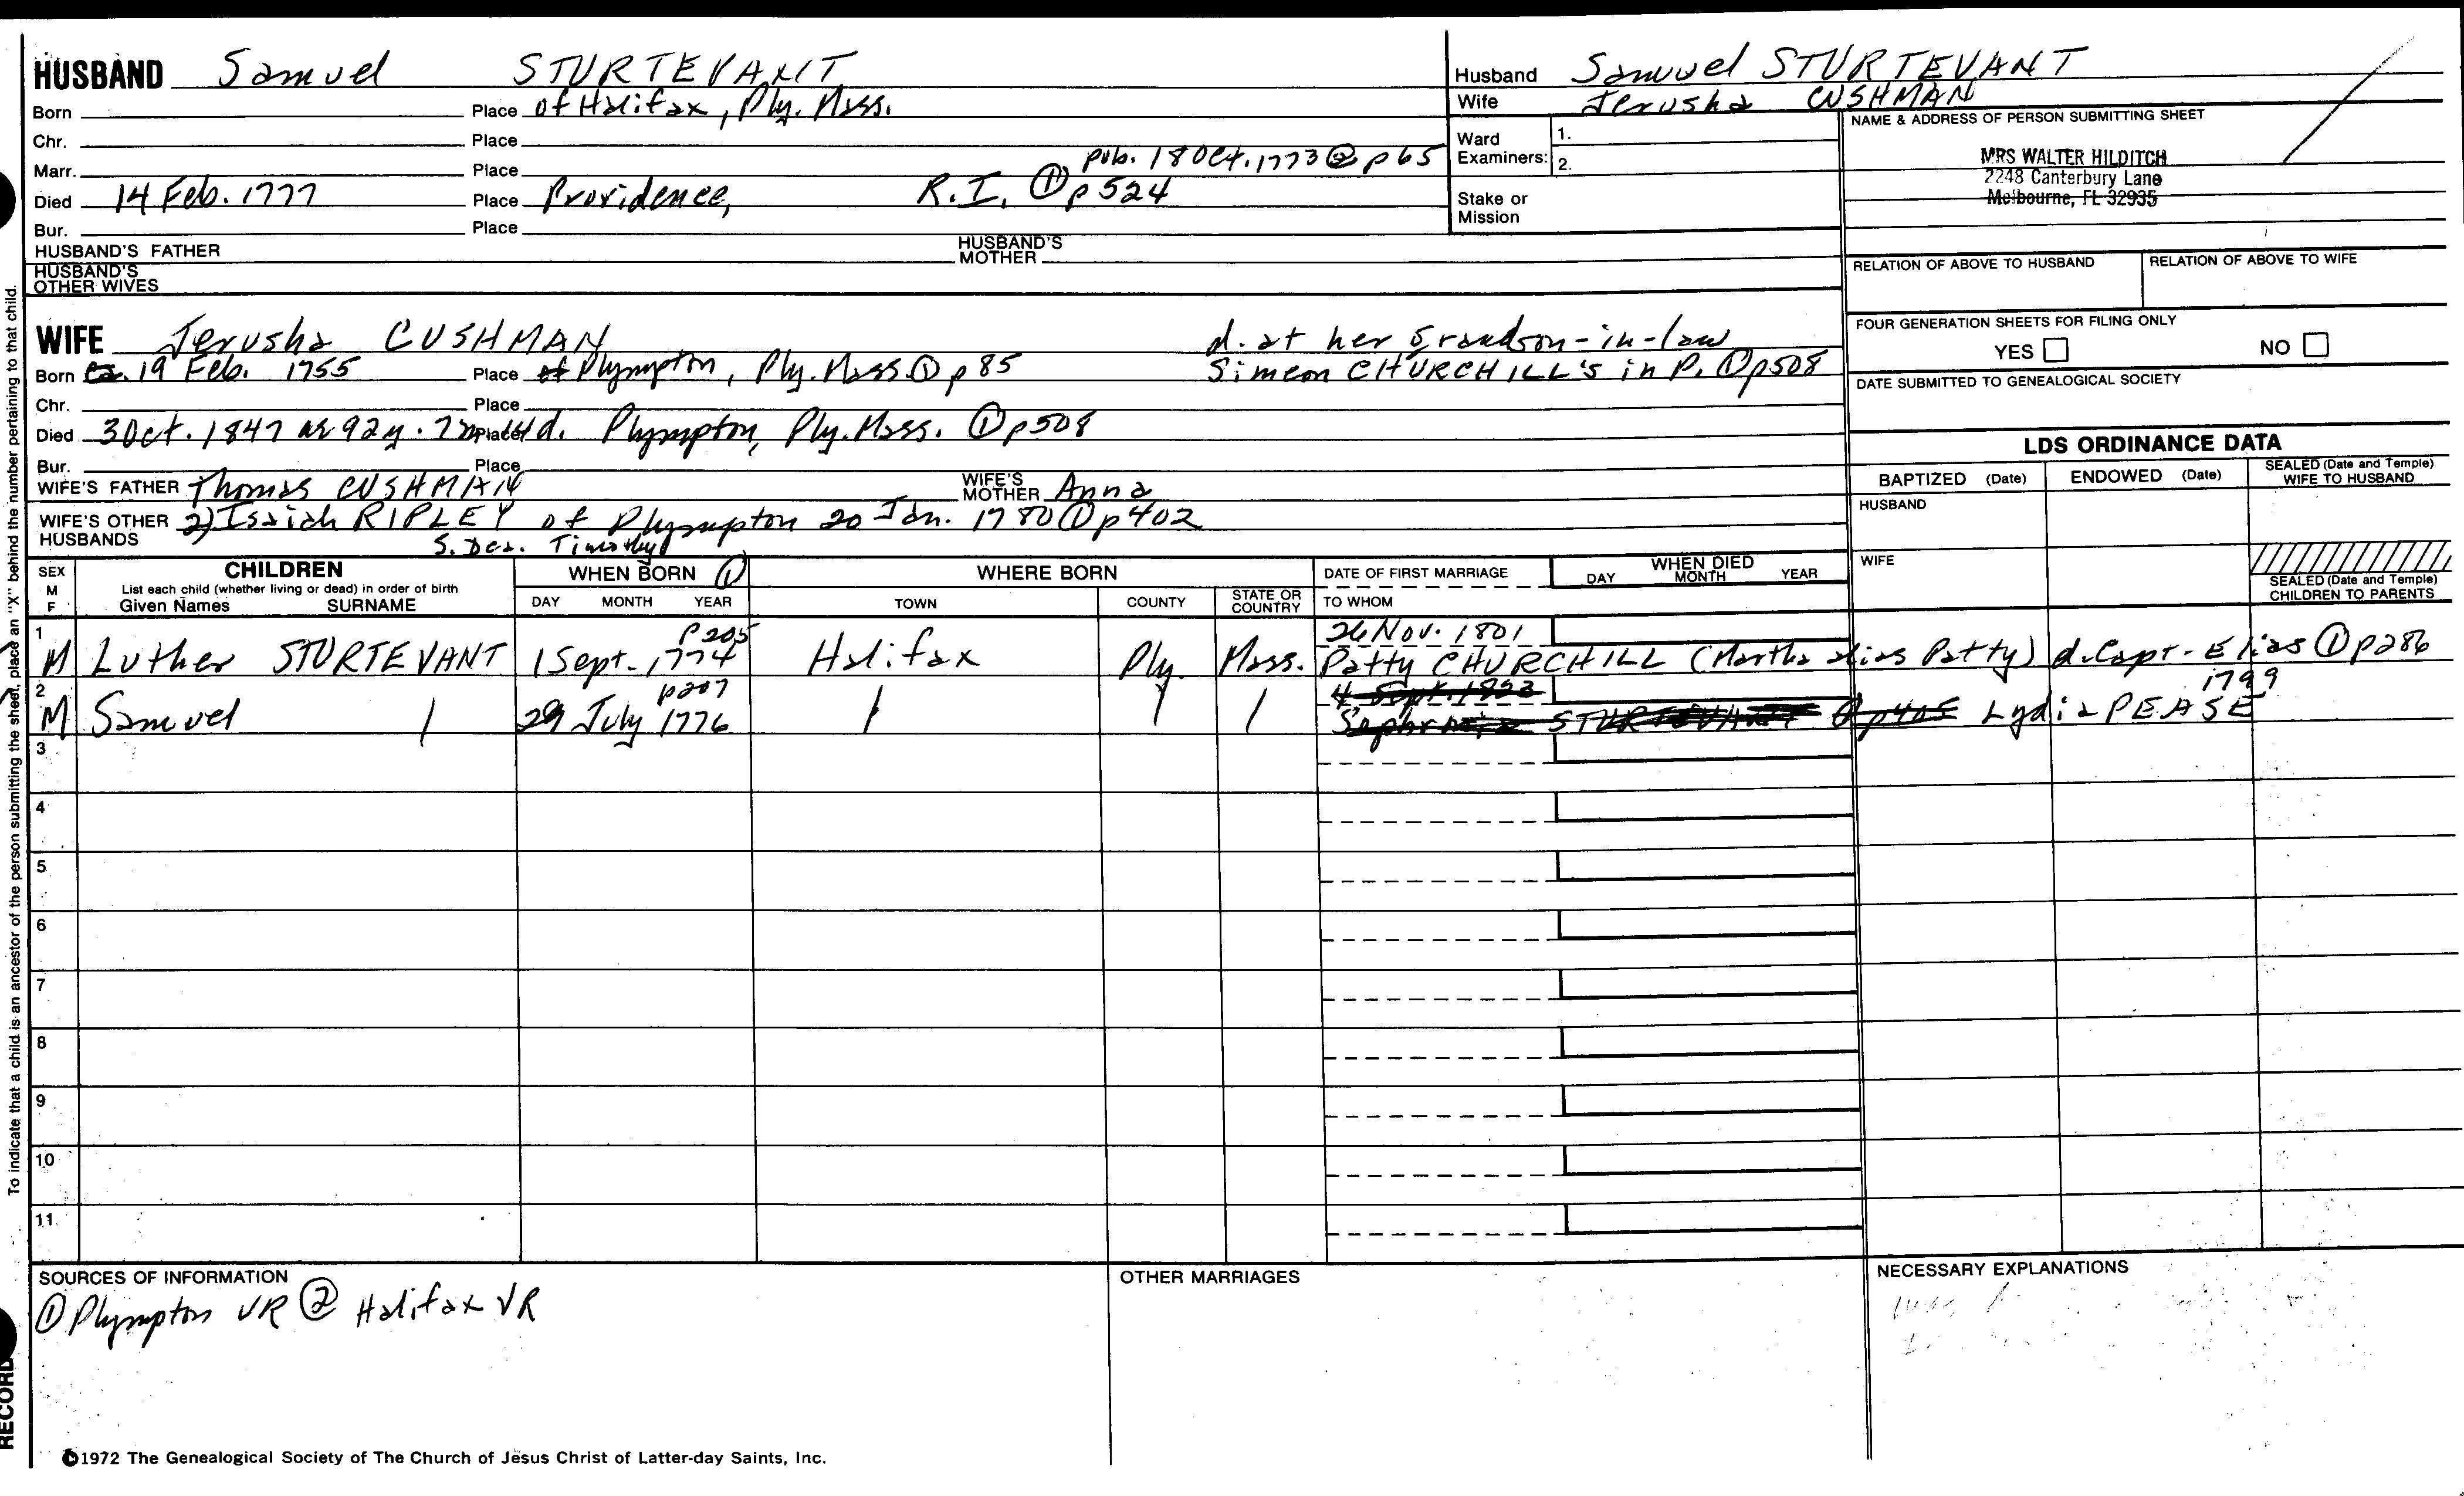 HUSBAND Samuel STURTEVANT
Born Place of Halifax, Ply. Mass.
Chr. Place
Marr. Place pub. 18 Oct. 1773 ② p 65
Died 14 Feb. 1777 Place Providence, R.I. ① p 524
Bur. Place
HUSBAND'S FATHER HUSBAND'S MOTHER
HUSBAND'S OTHER WIVES
Husband Samuel STURTEVANT
Wife Jerusha CUSHMAN
Ward Examiners: 1.
2.
Stake or Mission
NAME & ADDRESS OF PERSON SUBMITTING SHEET
MRS WALTER HILDITCH
2248 Canterbury Lane
Melbourne, FL 32935
RELATION OF ABOVE TO HUSBAND RELATION OF ABOVE TO WIFE
FOUR GENERATION SHEETS FOR FILING ONLY
YES NO
DATE SUBMITTED TO GENEALOGICAL SOCIETY
WIFE Jerusha CUSHMAN d. at her grandson-in-law
Born ca. 19 Feb. 1755 Place of Plympton, Ply. Mass. ① p 85 Simeon CHURCHILL's in P. ① p508
Chr. Place
Died 3 Oct. 1847 ae 92y. 7m 14d. Place Plympton, Ply. Mass. ① p 508
Bur. Place
WIFE'S FATHER Thomas CUSHMAN WIFE'S MOTHER Anna
WIFE'S OTHER HUSBANDS 2) Isaiah RIPLEY of Plympton 20 Jan. 1780 ① p 402
S. Dea. Timothy
LDS ORDINANCE DATA
BAPTIZED (Date) ENDOWED (Date) SEALED (Date and Temple) WIFE TO HUSBAND
HUSBAND
WIFE
SEALED (Date and Temple) CHILDREN TO PARENTS
SEX M F CHILDREN WHEN BORN ① WHERE BORN DATE OF FIRST MARRIAGE WHEN DIED
List each child (whether living or dead) in order of birth
Given Names SURNAME DAY MONTH YEAR TOWN COUNTY STATE OR COUNTRY TO WHOM DAY MONTH YEAR
1 p 205 26 Nov. 1801
M Luther STURTEVANT 1 Sept. 1774 Halifax Ply. Mass. Patty CHURCHILL (Martha alias Patty) d. Capt. Elias ① p286
2 p207 4 Sept. 1823 1799
M Samuel / 29 July 1776 / / / STURTEVANT ① p405 Lydia PEASE
3
4
5
6
7
8
9
10
11
SOURCES OF INFORMATION OTHER MARRIAGES NECESSARY EXPLANATIONS
① Plympton VR ② Halifax VR
©1972 The Genealogical Society of The Church of Jesus Christ of Latter-day Saints, Inc.
To indicate that a child is an ancestor of the person submitting the sheet, place an "X" behind the number pertaining to that child.
RECORD